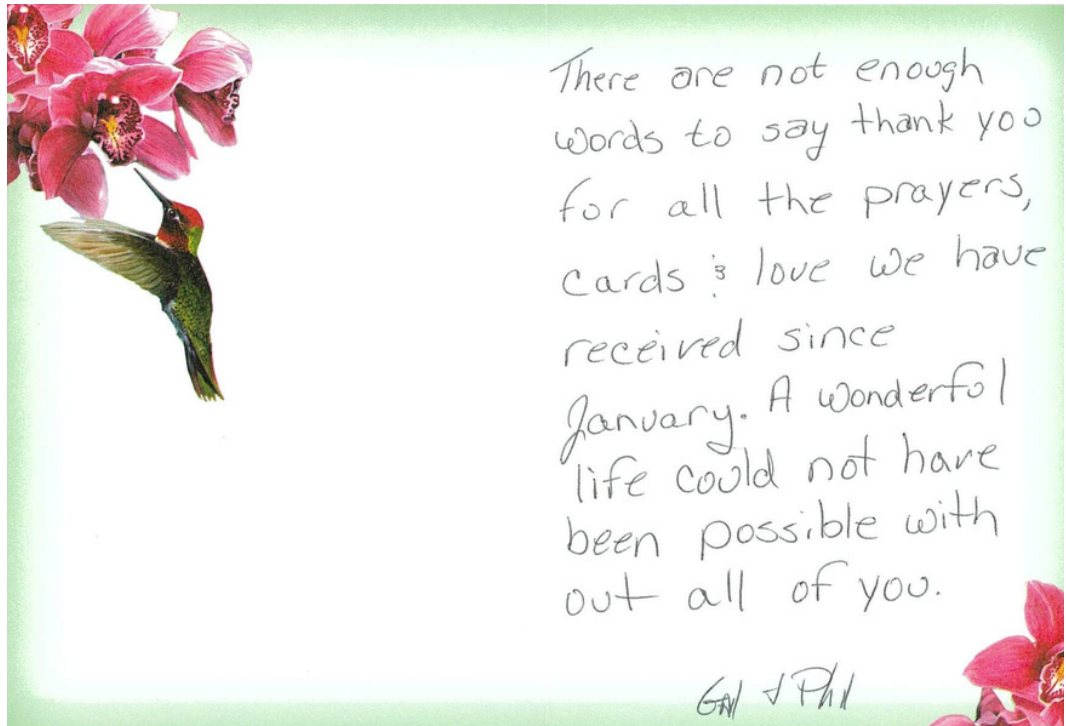 There are not enough
words to say thank you
for all the prayers,
cards & love we have
received since
January. A wonderful
life could not have
been possible with
out all of you.
Gail & Phil